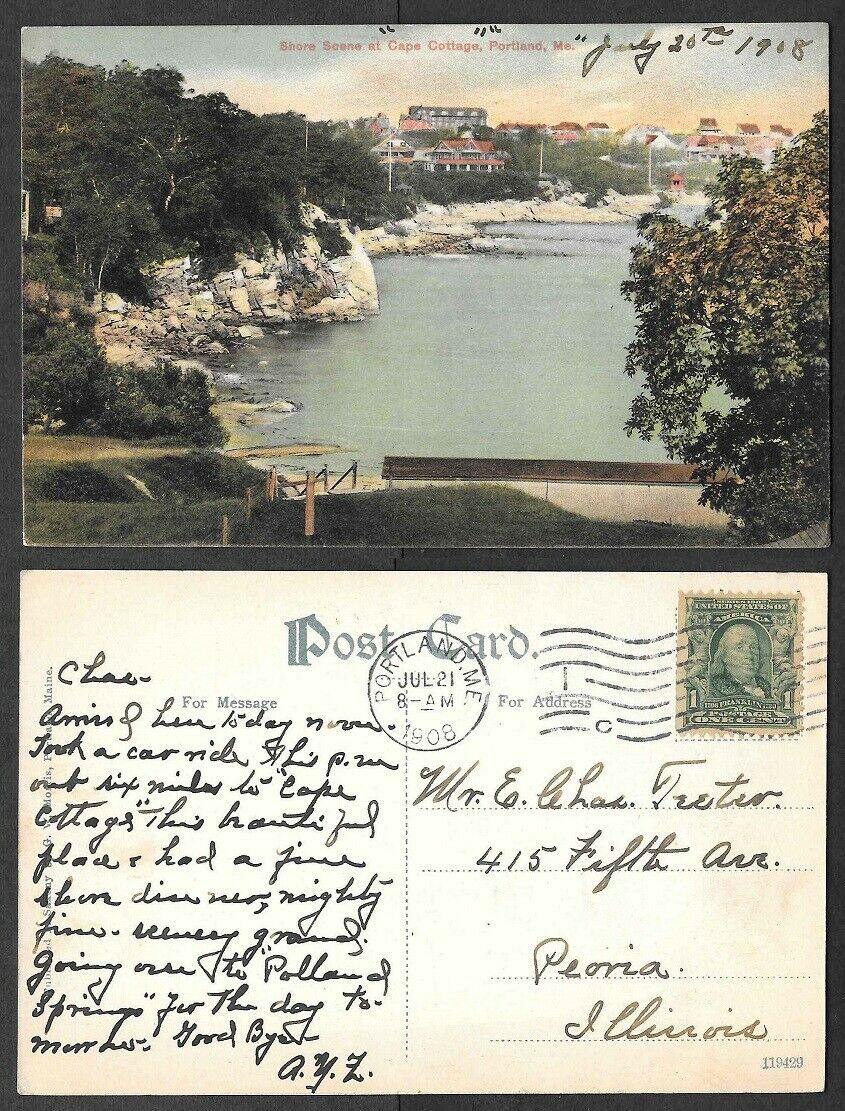 Shore Scene at "Cape Cottage", Portland, Me."
July 20th 1908
Post Card.
For Message
For Address
PORTLAND, ME.
JUL 21
8-AM
1908
1
C
SERIES 1902
UNITED STATES OF
AMERICA
FRANKLIN
POSTAGE
1 1
ONE CENT
Chas-
Arrived here to day noon
Took a car ride this p.m
out six miles to "Cape
Cottage" this beautiful
place & had a fine
shore dinner, mighty
fine - scenery grand.
Going over to "Polland
Springs" for the day to-
morrow. Good Bye-
A.Y.Z.
Mr. E. Chas. Teeter.
415 Fifth Ave.
Peoria.
Illinois
119429
Morris, Portland, Maine.